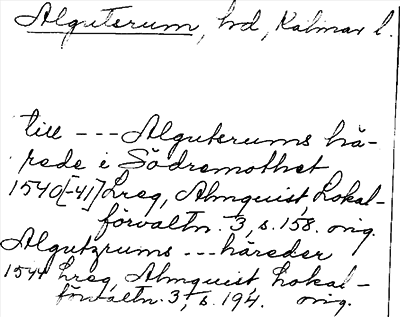 Algutsrum, hd, Kalmar l.
till --- Alguterums hä-
rede i Södremothet
1540[-41] Lreg, Almquist, Lokal-
förvaltn. 3, s. 158. orig.
Algutzrums --- häreder
1544 Lreg, Almquist, Lokal-
förvaltn. 3, s. 194. orig.